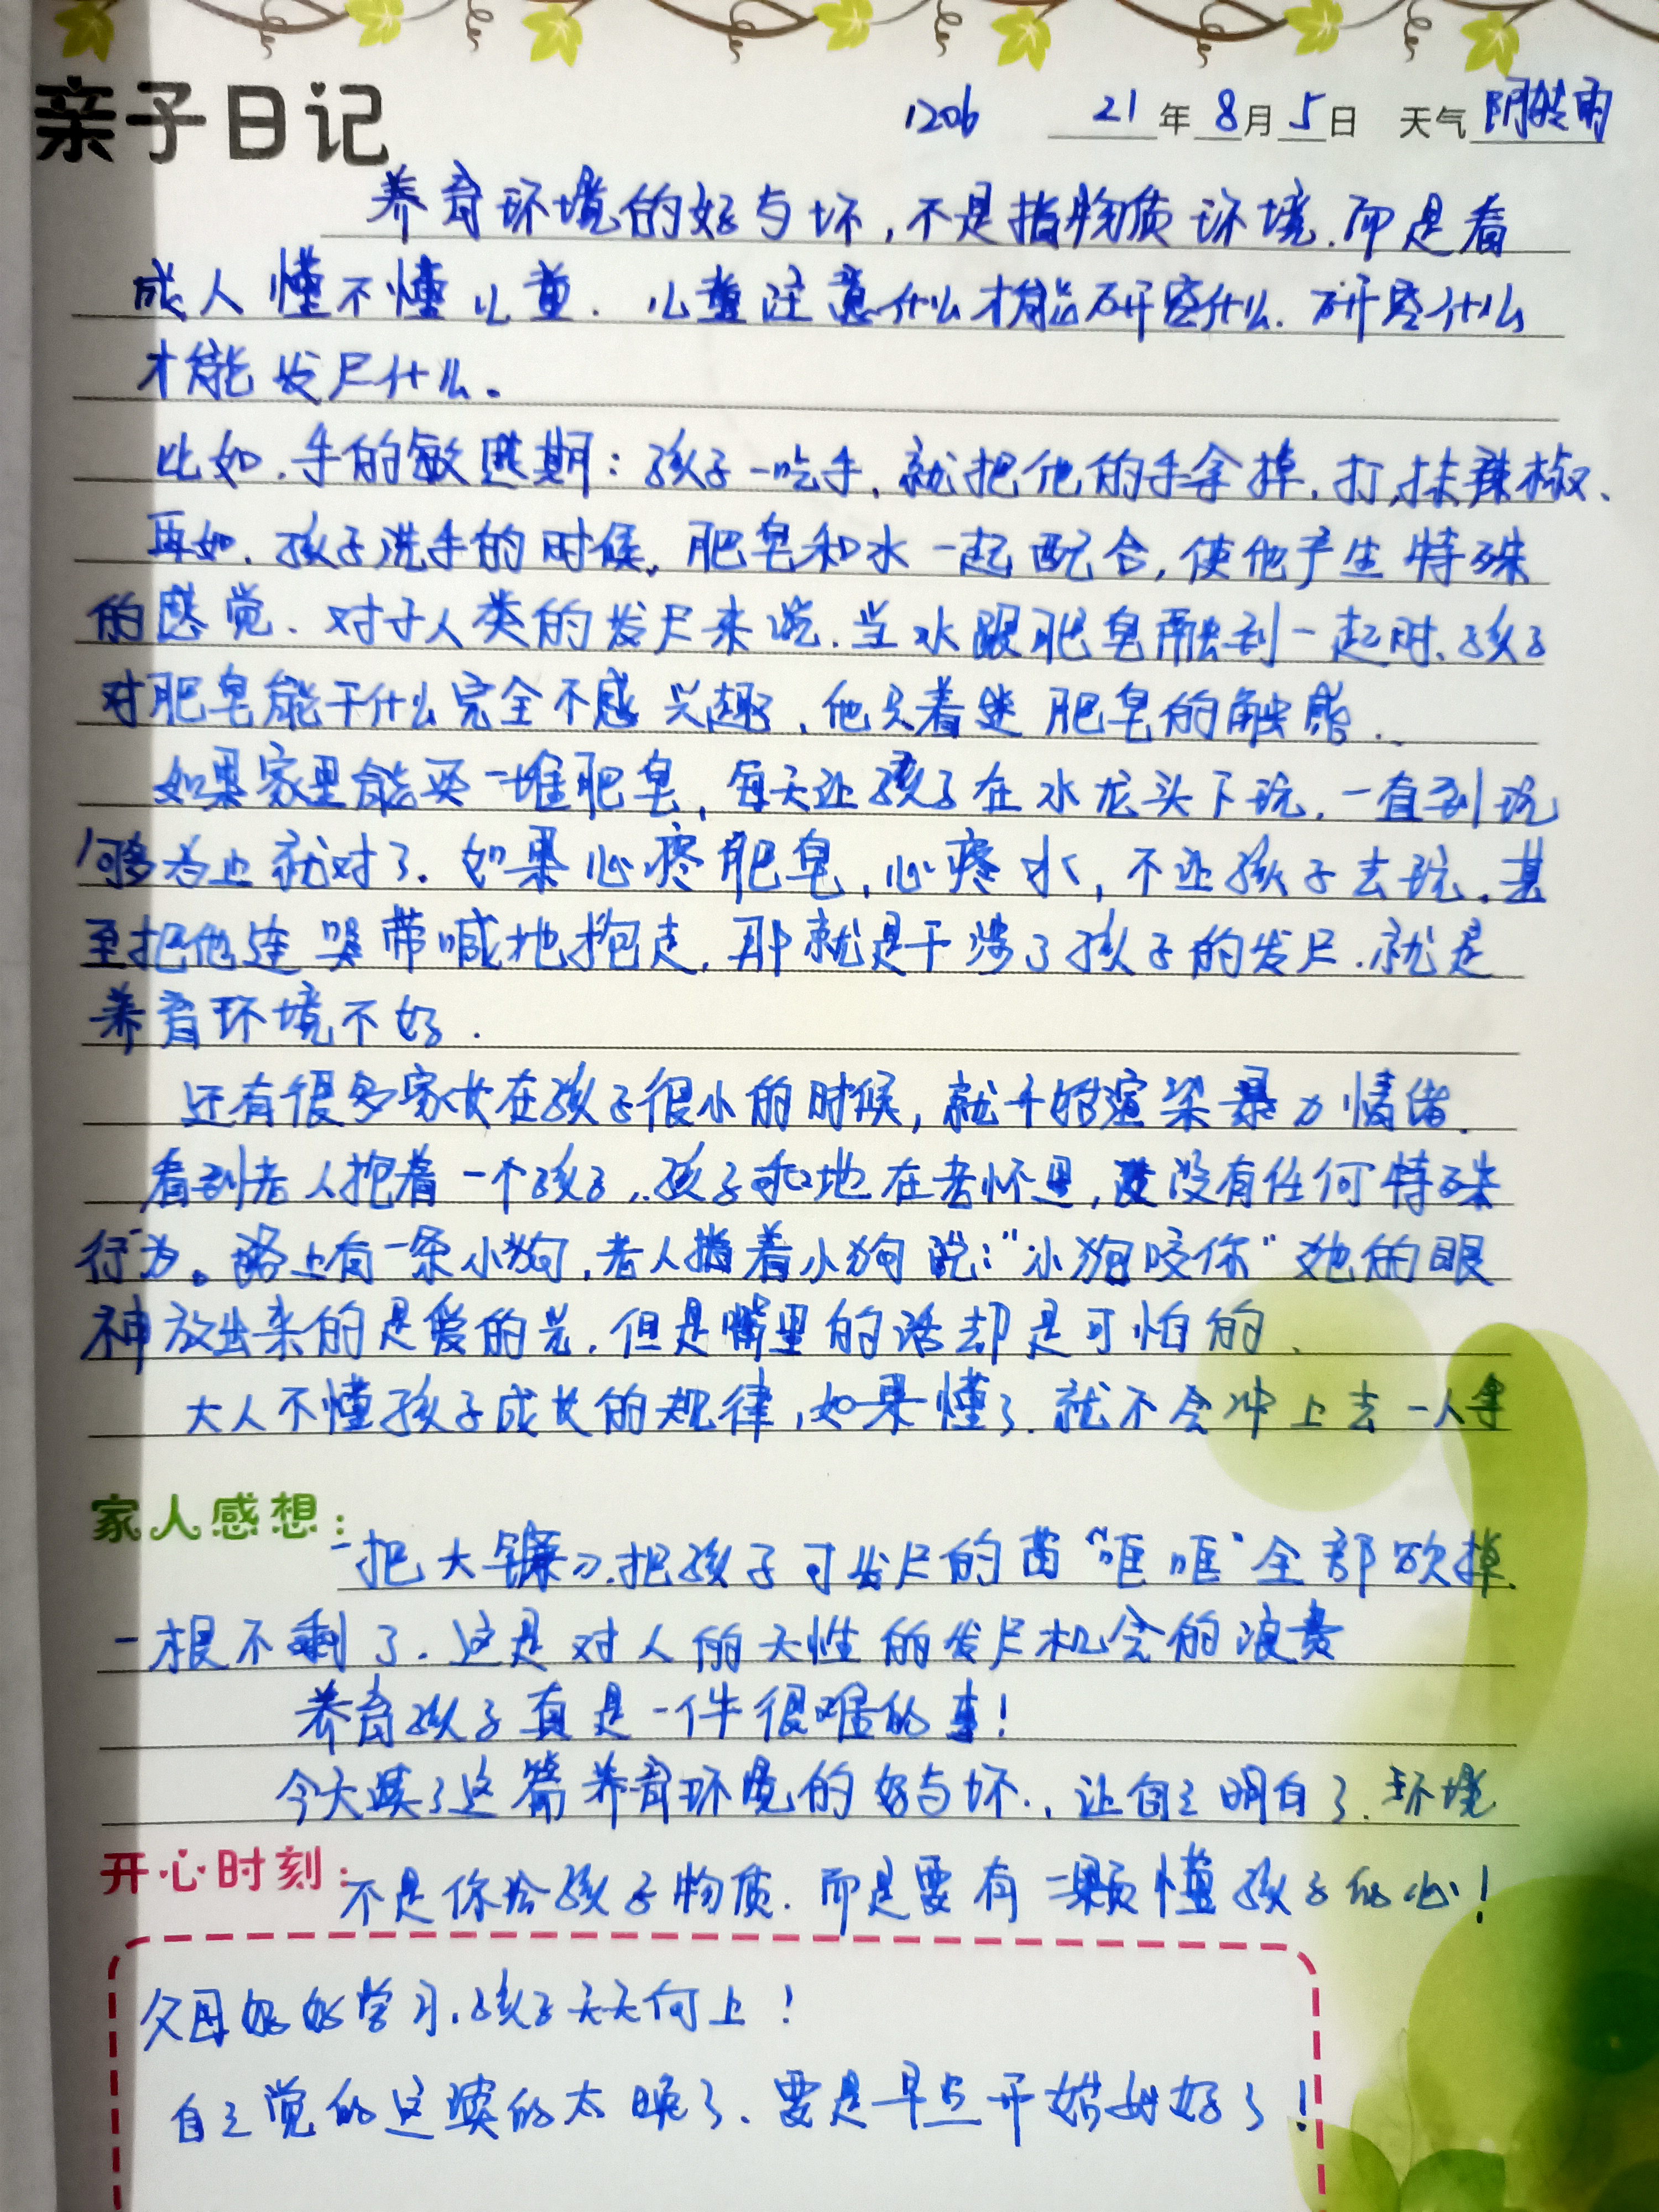 亲子日记 1206 21年8月5日 天气阴转雨
养育环境的好与坏,不是指物质环境.而是看
成人懂不懂儿童.儿童注意什么才能研究什么.研究什么
才能发展什么。
比如.手的敏感期:孩子一吃手,就把他的手拿掉.打,抹辣椒、
再如.孩子洗手的时候,肥皂和水一起配合,使他产生特殊
的感觉.对于人类的发展来说.当水跟肥皂融到一起时.孩子
对肥皂能干什么完全不感兴趣,他只着迷肥皂的触感.
如果家里能买一堆肥皂,每天让孩子在水龙头下玩.一直到玩
够为止就对了.如果心疼肥皂,心疼水,不让孩子去玩.甚
至把他连哭带喊地抱走.那就是干涉了孩子的发展.就是
养育环境不好.
还有很多家长在孩子很小的时候,就开始渲染暴力情绪.
看到老人抱着一个孩子,孩子乖地在老怀里,没有任何特殊
行为。路上有一条小狗,老人指着小狗说:"小狗咬你"她的眼
神放出来的是爱的光.但是嘴里的话却是可怕的.
大人不懂孩子成长的规律,如果懂了.就不会冲上去一人拿
家人感想:
一把大镰刀.把孩子可发展的苗"哐哐"全部砍掉.
一根不剩了.这是对人的天性的发展机会的浪费
养育孩子真是一件很难的事!
今天读了这篇养育环境的好与坏.,让自己明白了.环境
开心时刻:
不是你给孩子物质.而是要有一颗懂孩子的心!
父母好好学习.孩子天天向上!
自己觉的这读的太晚了.要是早点开始好了!